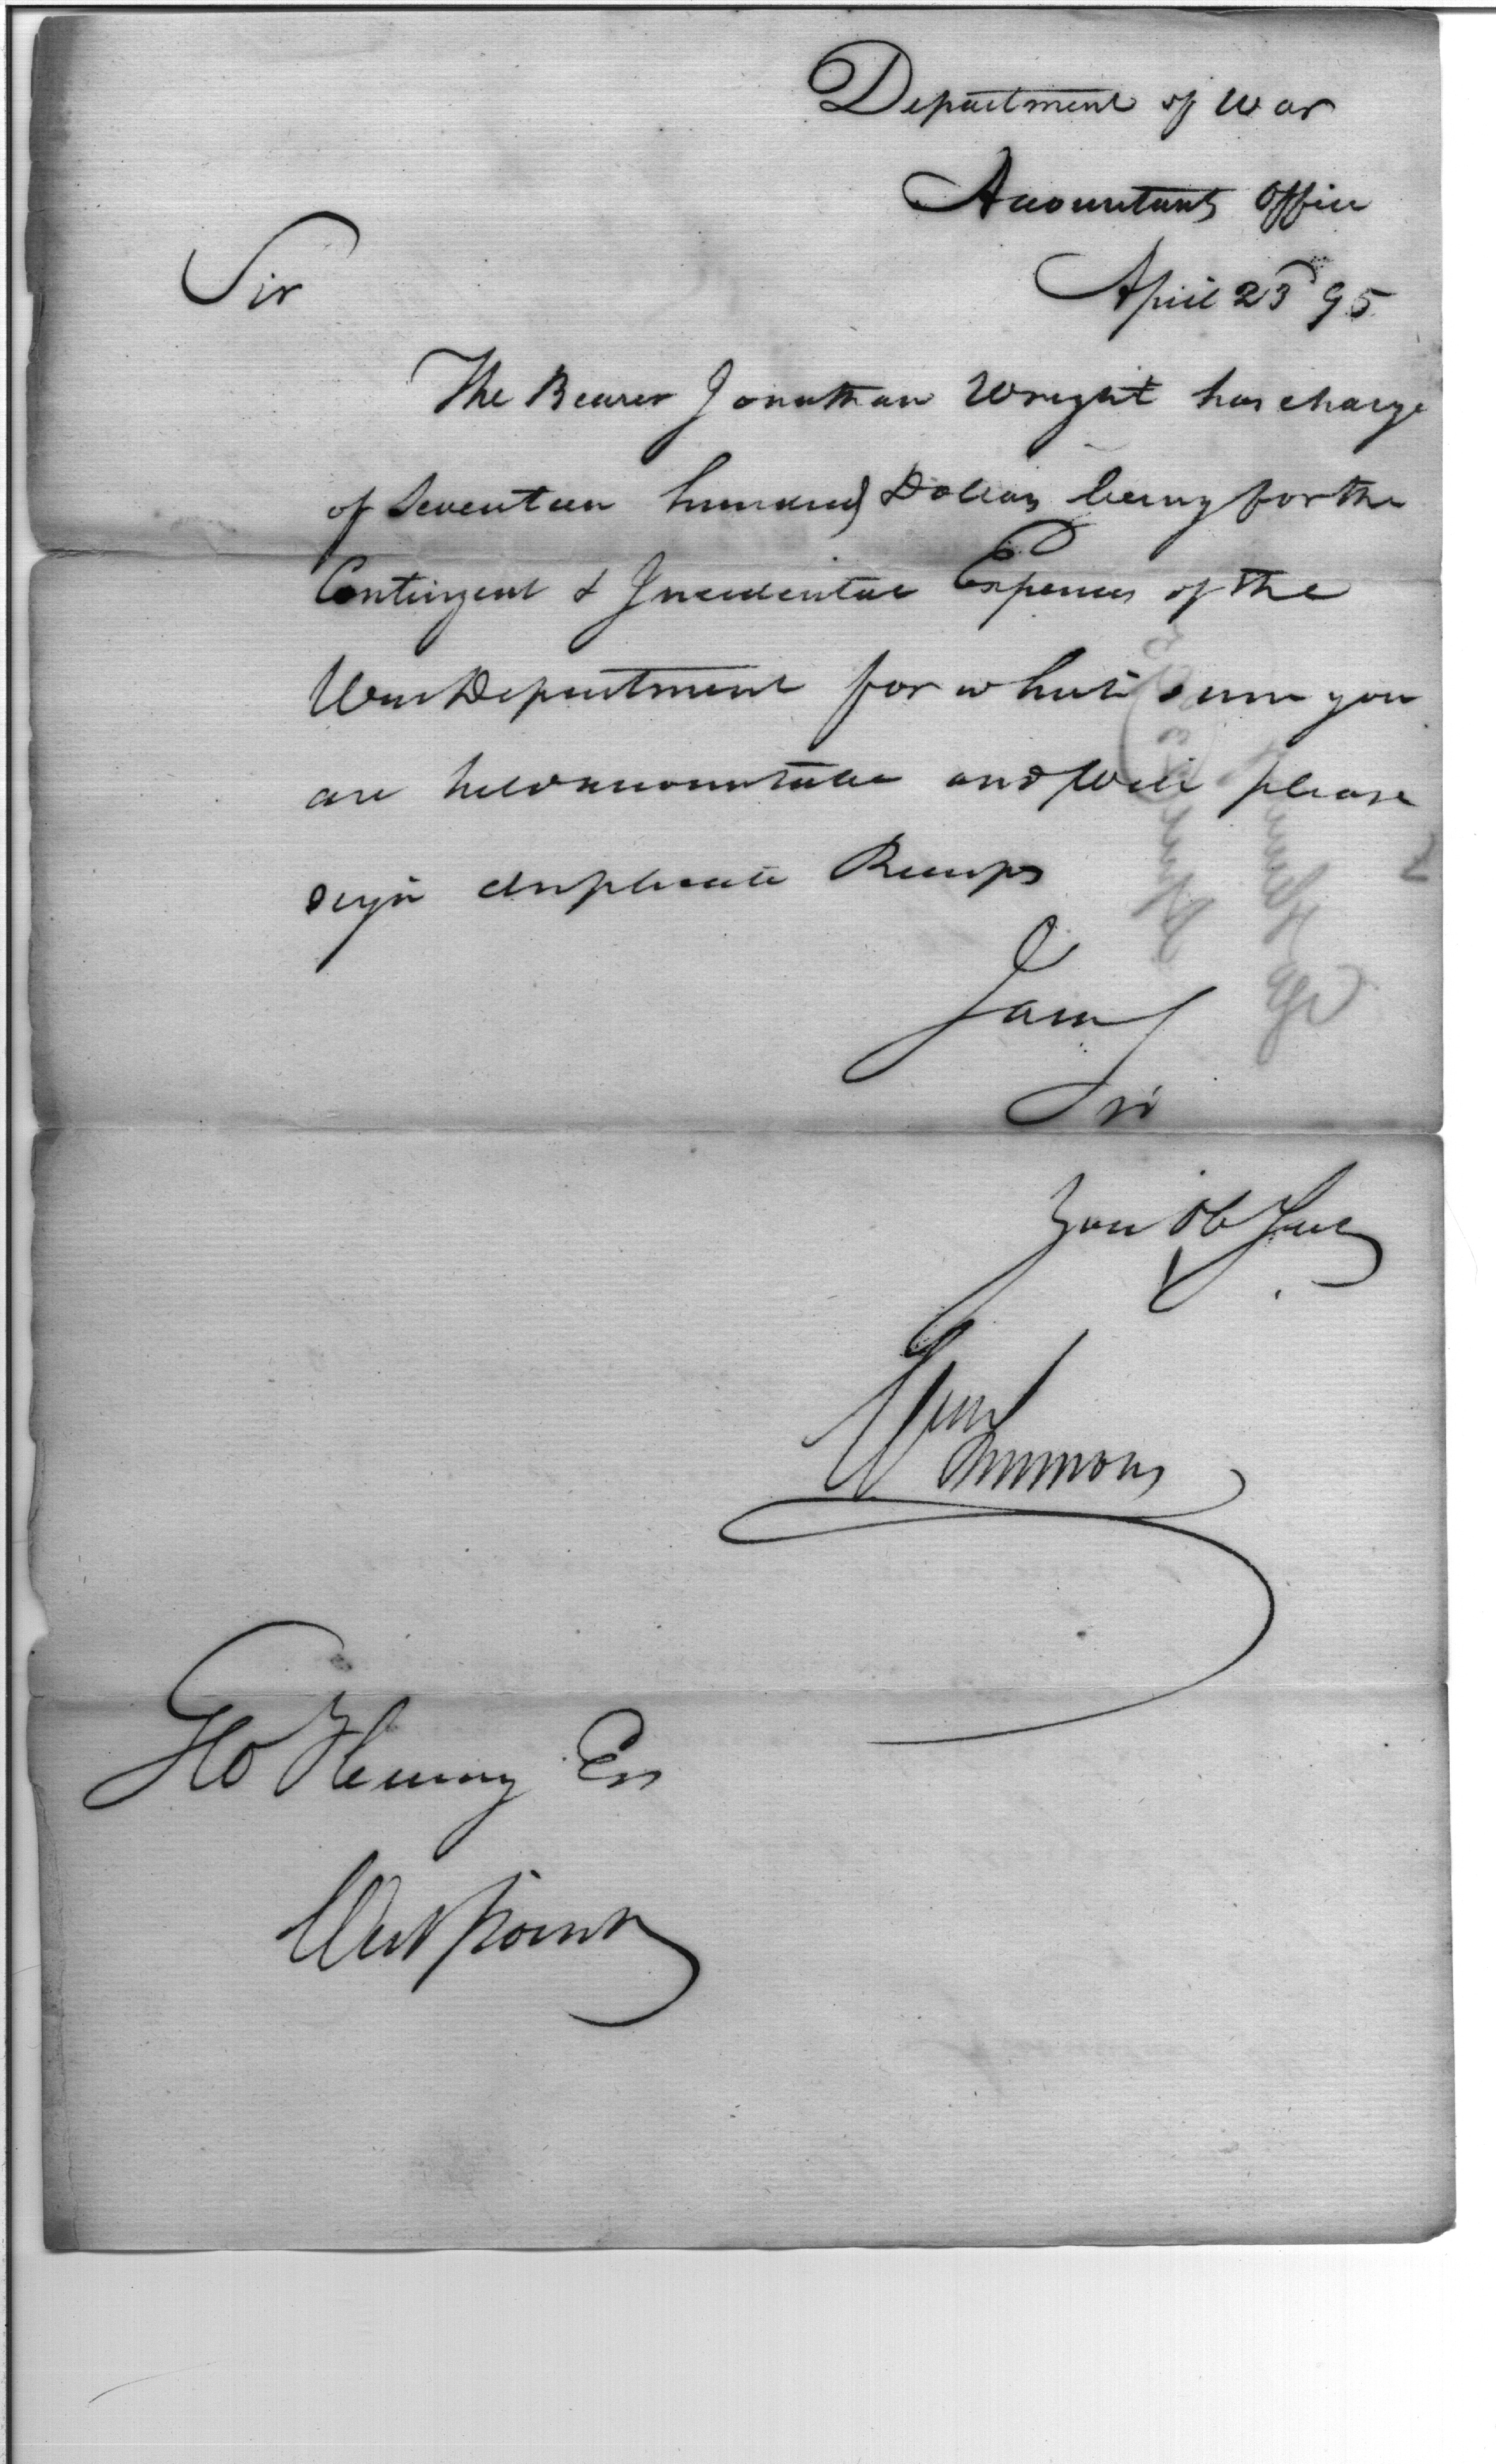 Department of War
Accountants Office
April 23d 95
Sir
The Bearer Jonathan Wright has charge
of Seventeen hundred Dollars being for the
Contingent & Incidental Expences of the
War Department for which sum you
are held accountable and will please
sign duplicate Receipts
I am
Sir
Your Ob Serv
Wm Simmons
Geo Fleming Esq
West point